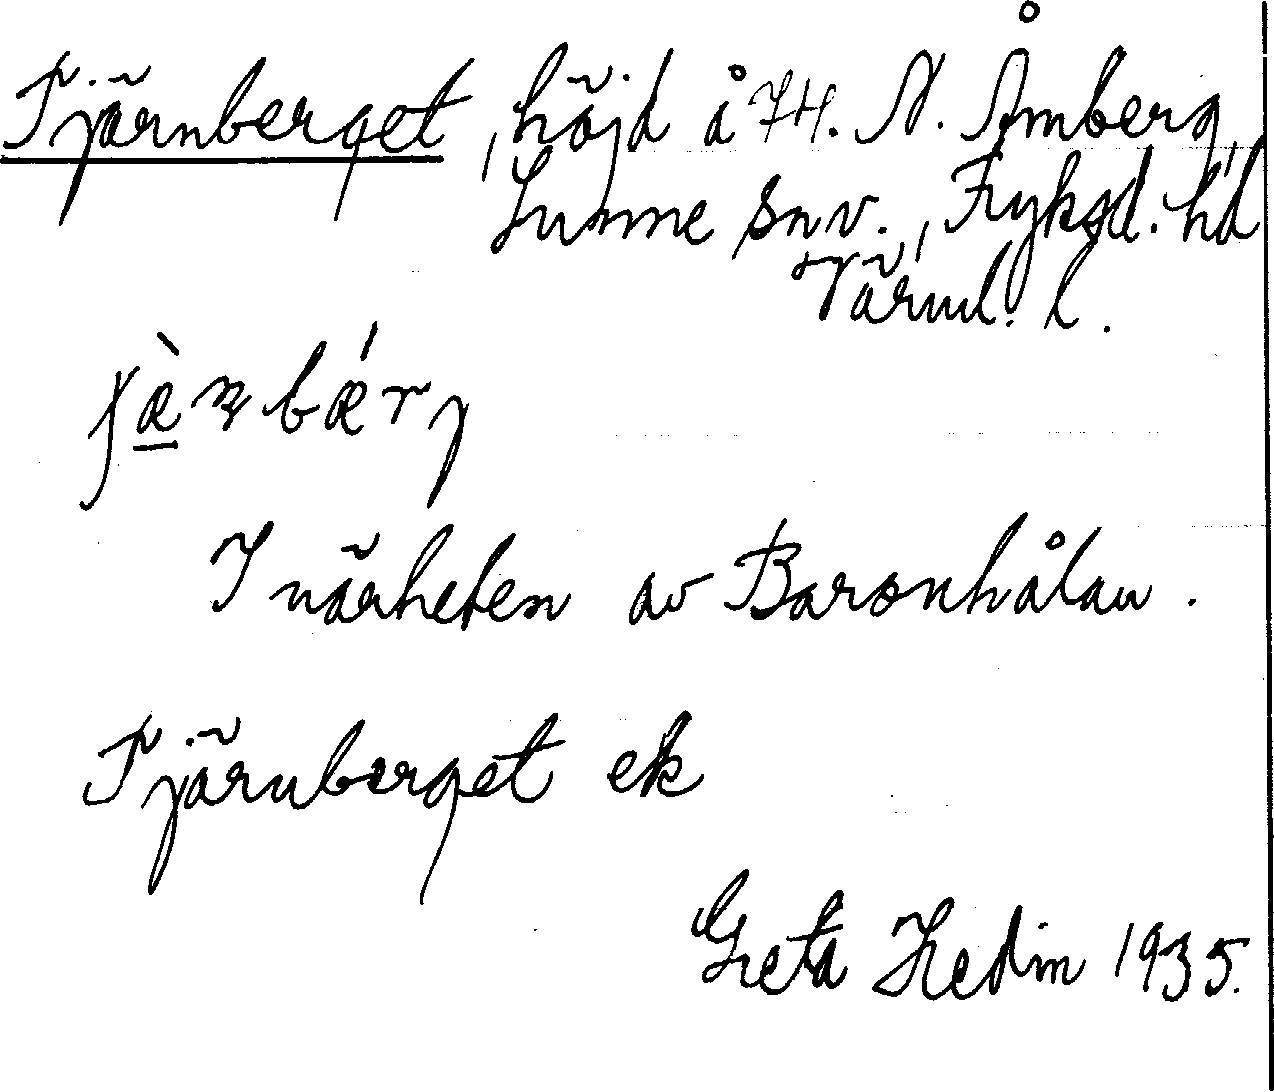 Tjärnberget, höjd å 74. N. Åmberg,
Sunne snv., Fryksd. hd
Värml. l.
I närheten av Baronhålan.
Tjärnberget ek
Greta Hedin 1935.